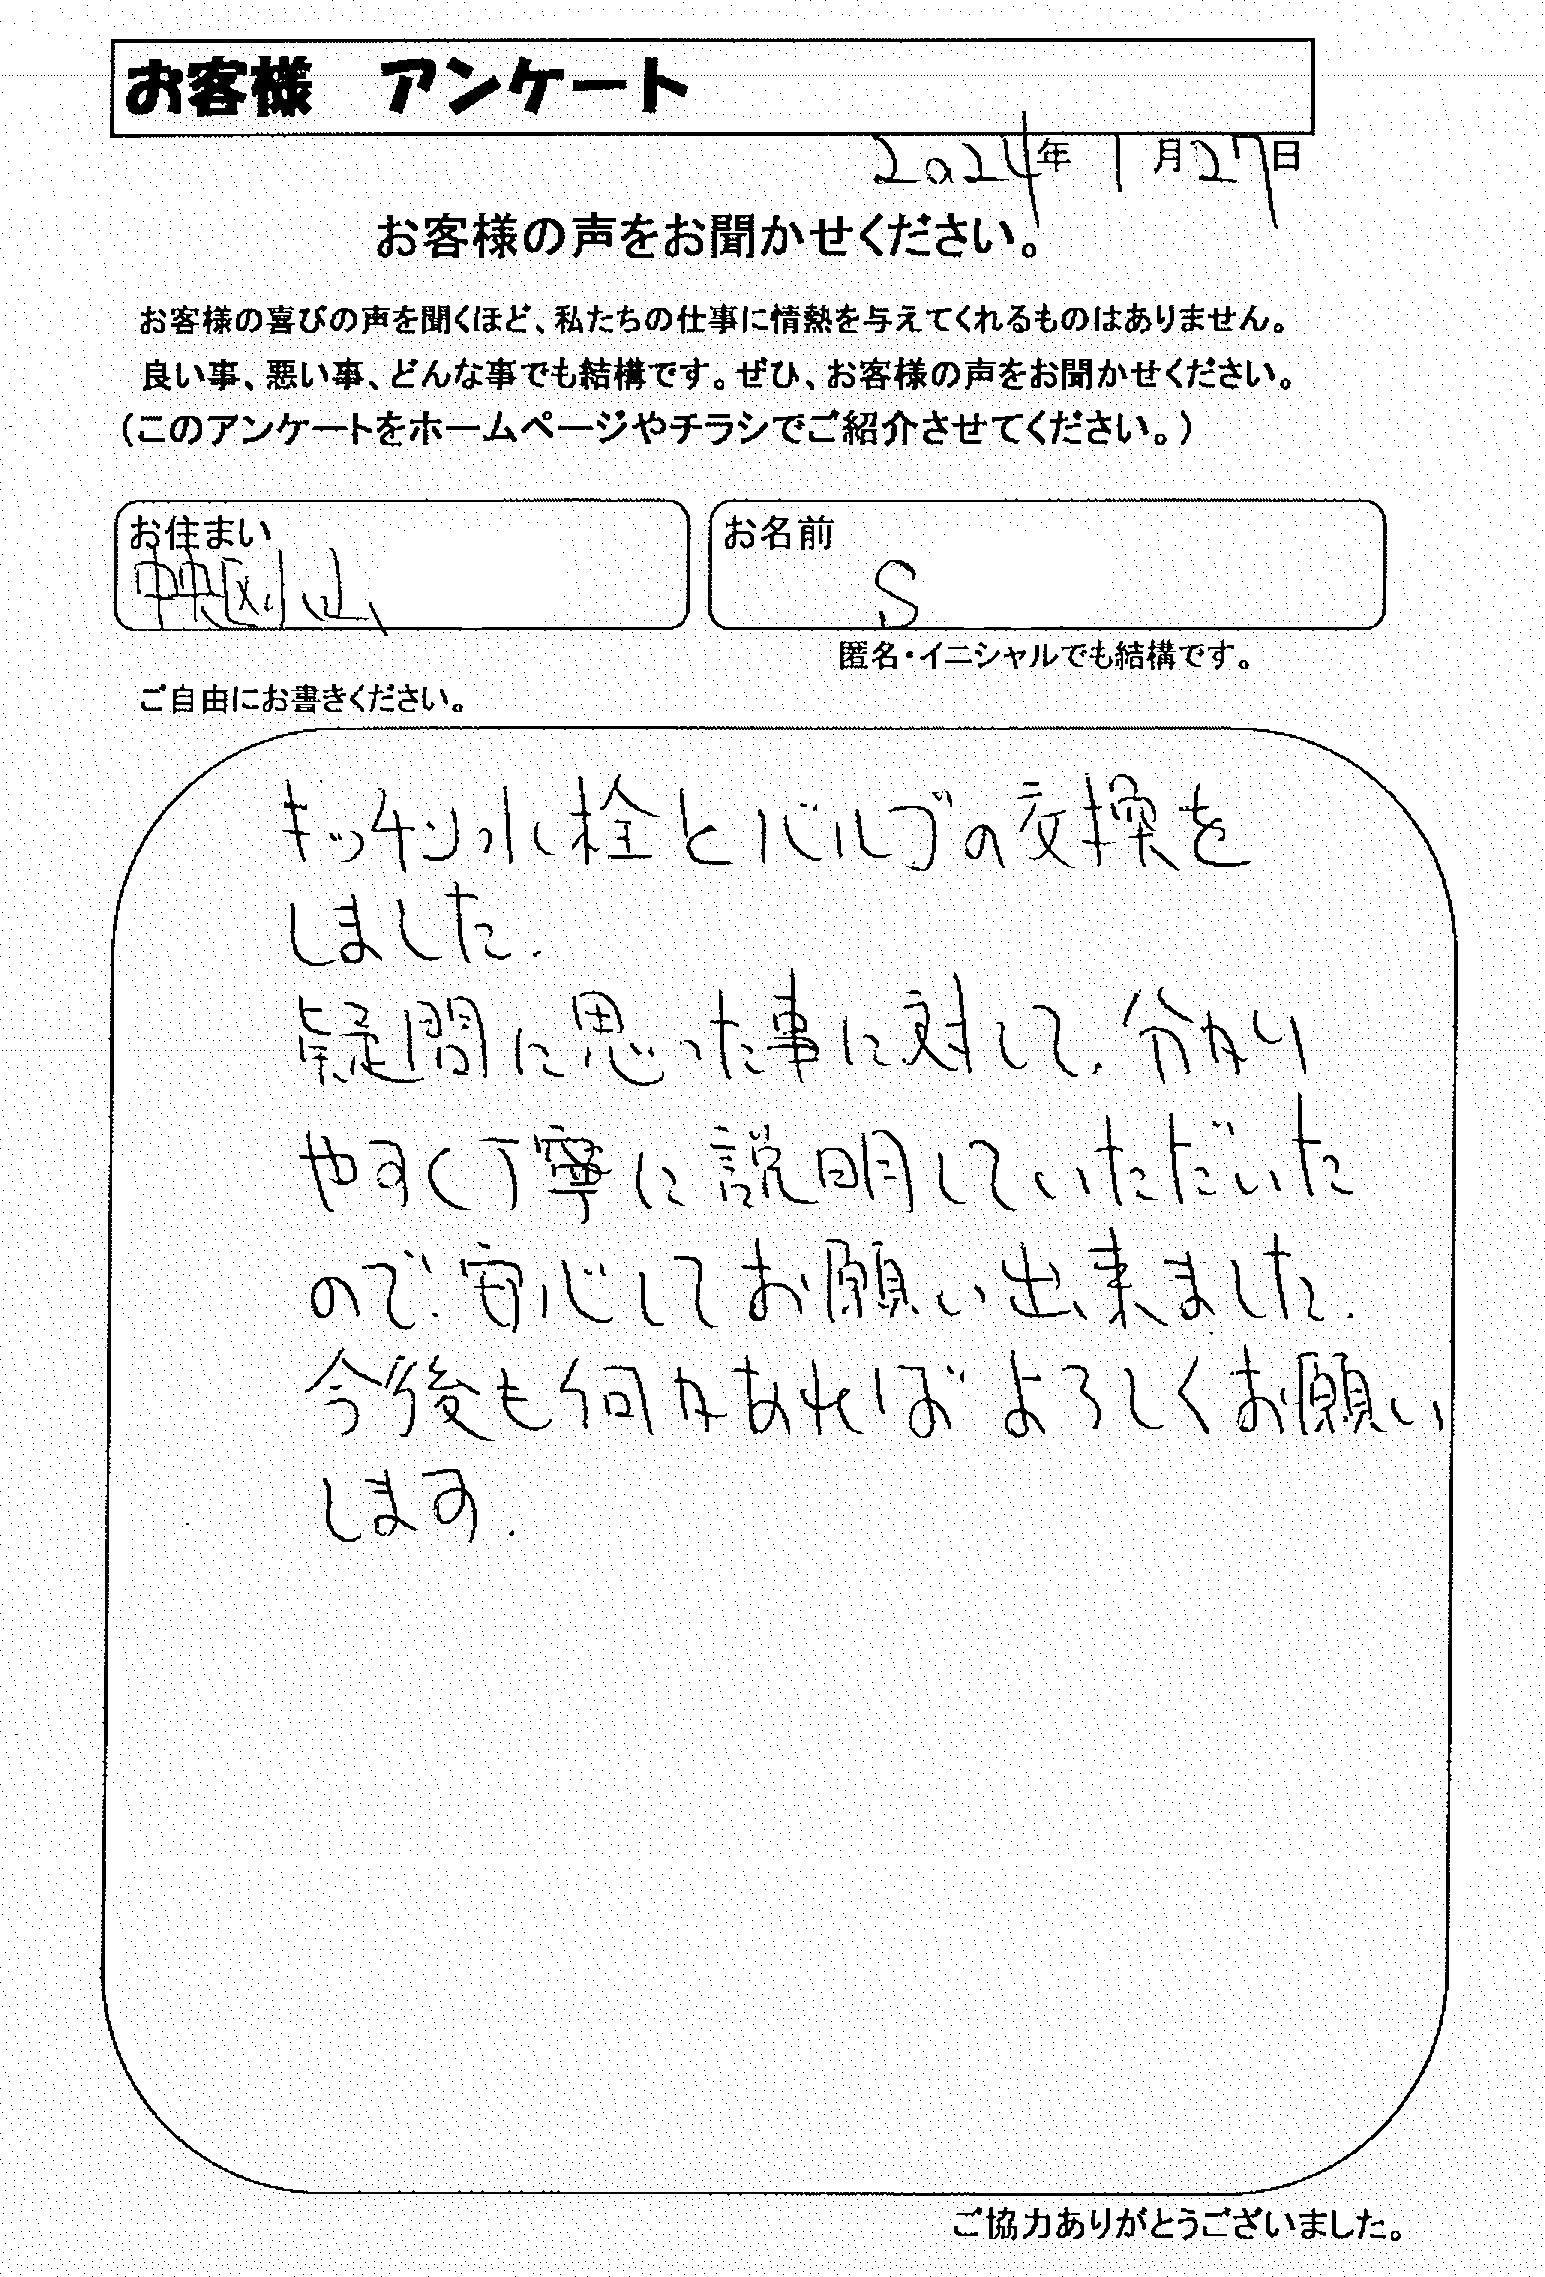 お客様 アンケート
2024年 1月27日
お客様の声をお聞かせください。
お客様の喜びの声を聞くほど、私たちの仕事に情熱を与えてくれるものはありません。
良い事、悪い事、どんな事でも結構です。ぜひ、お客様の声をお聞かせください。
(このアンケートをホームページやチラシでご紹介させてください。)
お住まい
中央区
お名前
S
匿名・イニシャルでも結構です。
ご自由にお書きください。
キッチン水栓とバルブの交換を
しました.
疑問に思った事に対して、分かり
やすく丁寧に説明していただいた
ので、安心してお願い出来ました.
今後も何かあればよろしくお願い
します.
ご協力ありがとうございました。